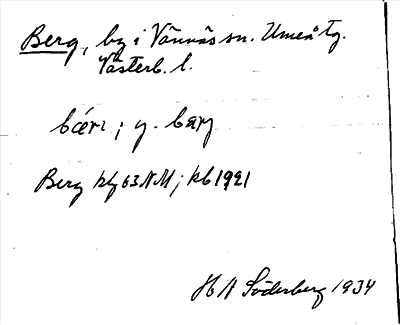 Berg, by i Vännäs sn. Umeå tg.
Västerb. l.
bærı ; y. bærj
Berg kbf 63 NM ; kb 1921
H N Söderberg 1934